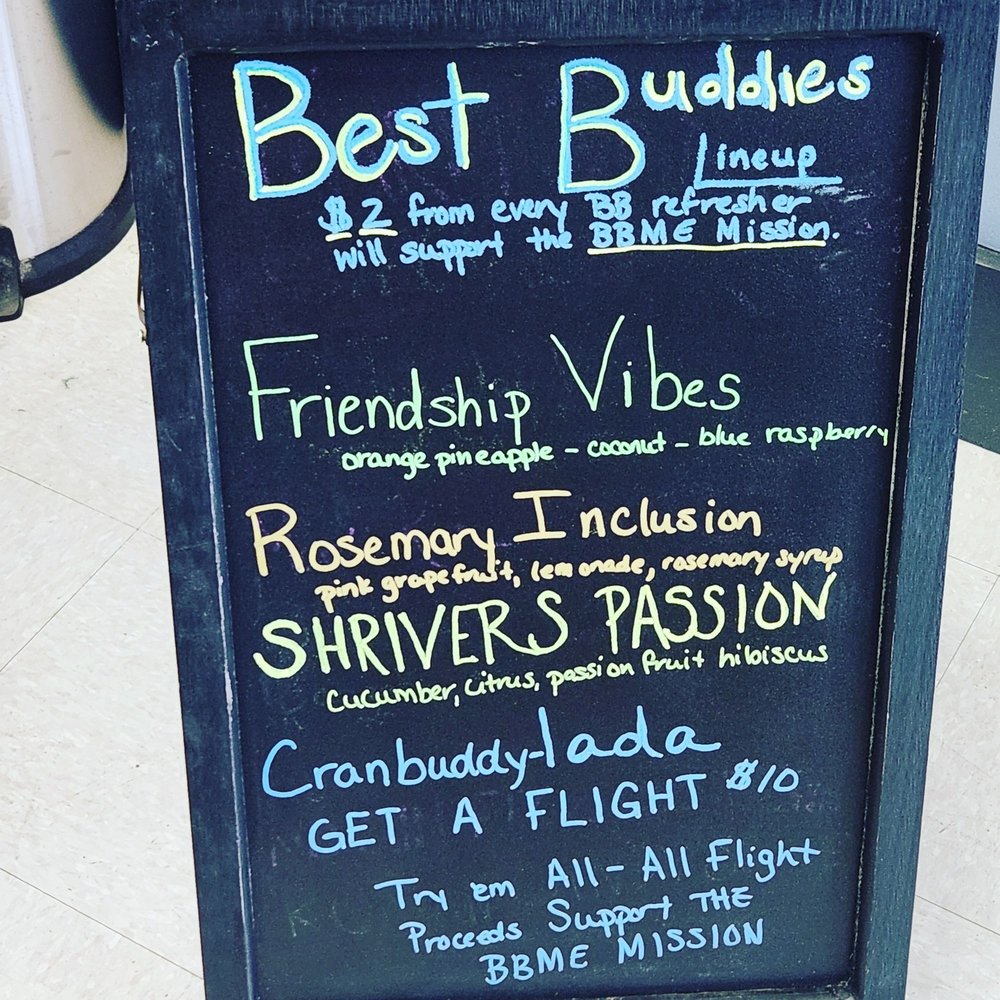 Best Buddies
Lineup
$2 from every BB refresher
will support the BBME Mission.
Friendship Vibes
orange pineapple - coconut - blue raspberry
Rosemary Inclusion
pink grapefruit, lemonade, rosemary syrup
SHRIVERS PASSION
cucumber, citrus, passion fruit hibiscus
Cranbuddy-lada
GET A FLIGHT $10
Try 'em All - All Flight
Proceeds Support THE
BBME MISSION